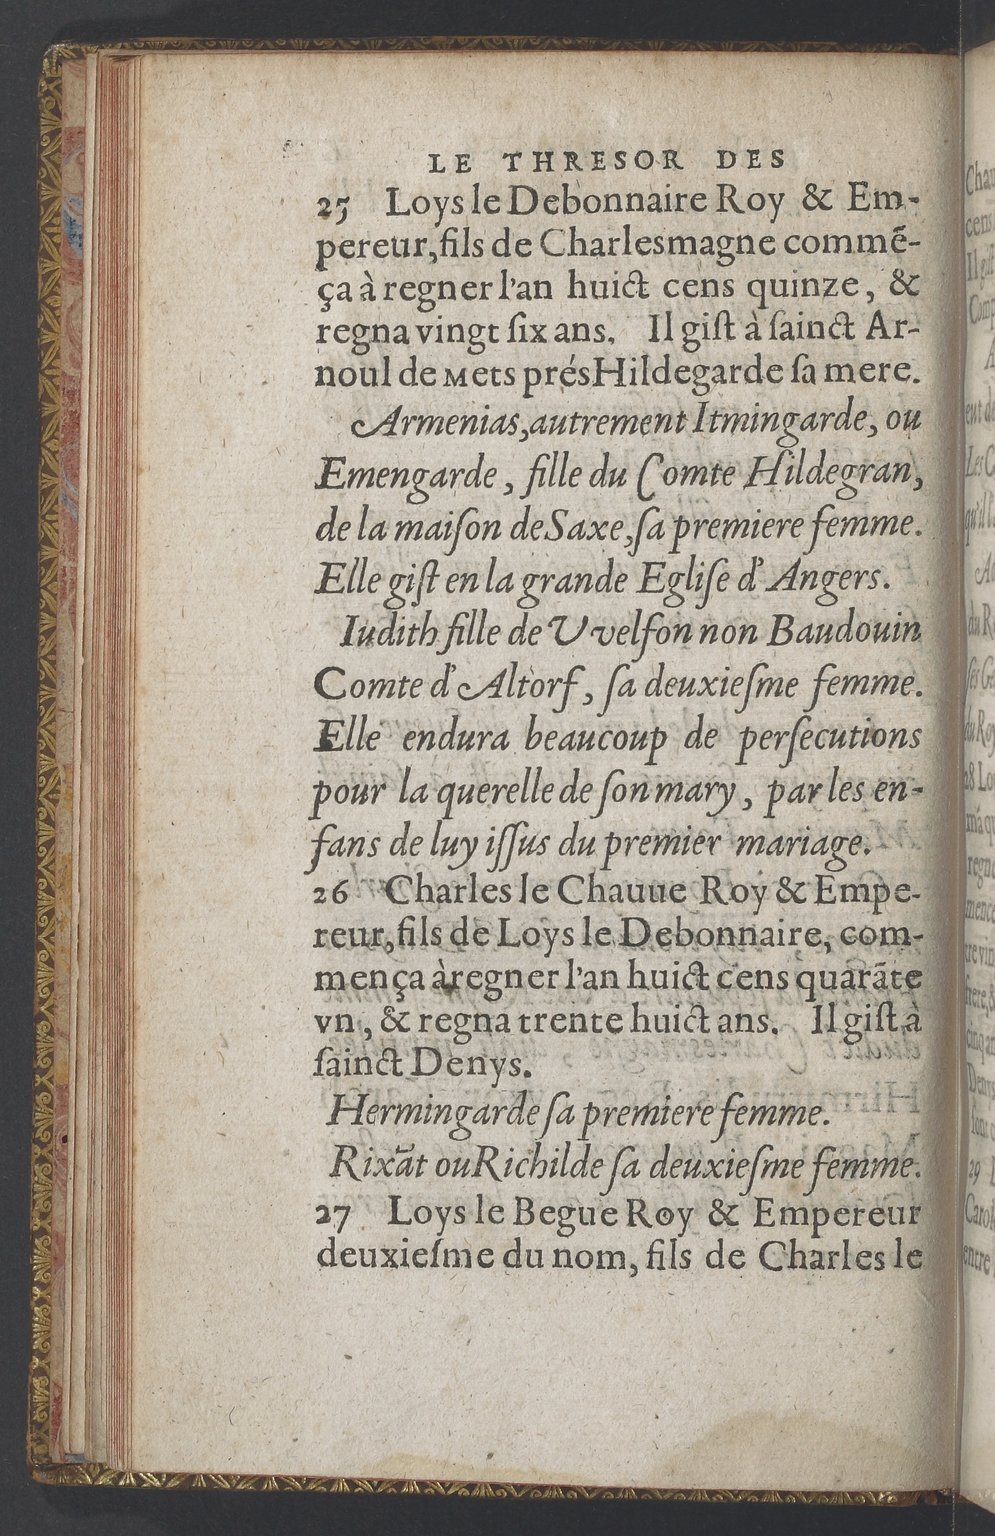 LE THRESOR DES
25 Loys le Debonnaire Roy & Em-
pereur, fils de Charlesmagne commẽ-
ça à regner l'an huict cens quinze, &
regna vingt ſix ans. Il giſt à ſainct Ar-
noul de Mets prés Hildegarde ſa mere.
Armenias, autrement Itmingarde, ou
Emengarde, fille du Comte Hildegran,
de la maiſon de Saxe, ſa premiere femme.
Elle giſt en la grande Egliſe d'Angers.
Iudith fille de Uvelfon non Baudouin
Comte d'Altorf, ſa deuxieſme femme.
Elle endura beaucoup de perſecutions
pour la querelle de ſon mary, par les en-
fans de luy iſſus du premier mariage.
26 Charles le Chauue Roy & Empe-
reur, fils de Loys le Debonnaire, com-
mença à regner l'an huict cens quarãte
vn, & regna trente huict ans. Il giſt à
ſainct Denys.
Hermingarde ſa premiere femme.
Rixãt ou Richilde ſa deuxieſme femme.
27 Loys le Begue Roy & Empereur
deuxieſme du nom, fils de Charles le